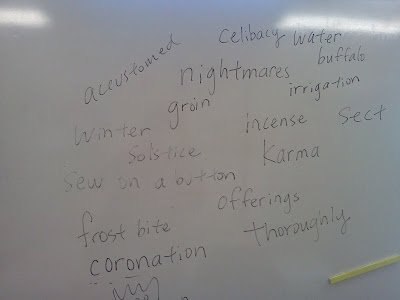 accustomed
Celibacy
water
buffalo
nightmares
irrigation
groin
winter
solstice
incense
sect
Karma
Sew on a button
offerings
frost bite
thoroughly
coronation